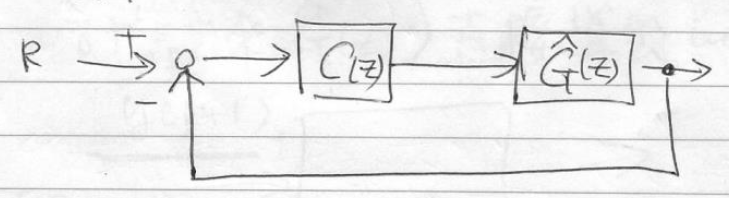 R + C(z) Ĝ(z)
-